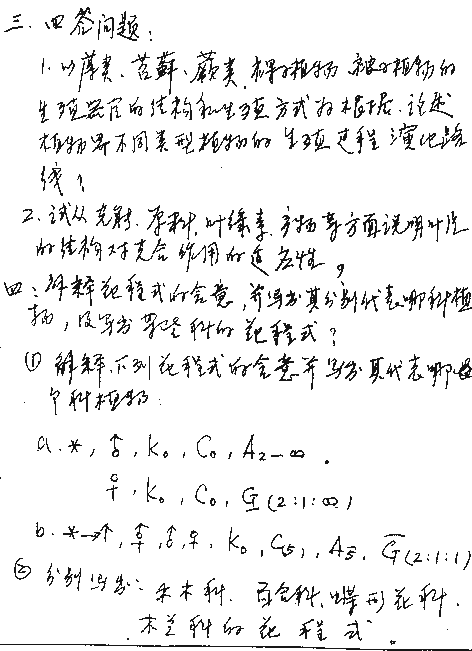 三、回答问题：
1. 以藻类、苔藓、蕨类、裸子植物、被子植物的
生殖器官的结构和生殖方式为根据，论述
植物界不同类型植物的生殖过程演化路
线？
2. 试从光照、原料、叶绿素、产物等方面说明叶片
的结构对光合作用的适应性。
四：解释花程式的含意，并写出其分别代表哪科植
物，及写出某些科的花程式？
① 解释下列花程式的含意并写出其代表哪
个科植物：
a. *, ♂, K₀, C₀, A₂₋∞.
♀, K₀, C₀, G̲(2:1:∞)
b. *→↑, ⚥, ♂, ♀, K₀, C₍₅₎, A₅, G̅(2:1:1)
② 分别写出：禾本科、百合科、蝶形花科、
木兰科的花程式。